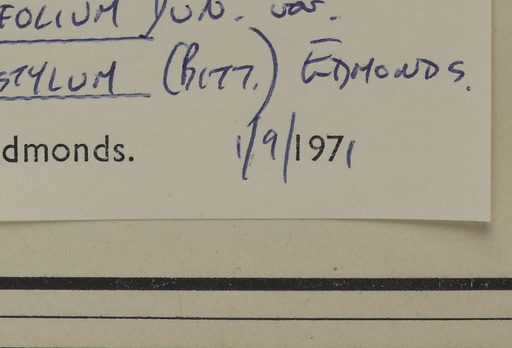 FOLIUM DUN. var.
STYLUM (BITT.) EDMONDS.
dmonds. 1/9/1971